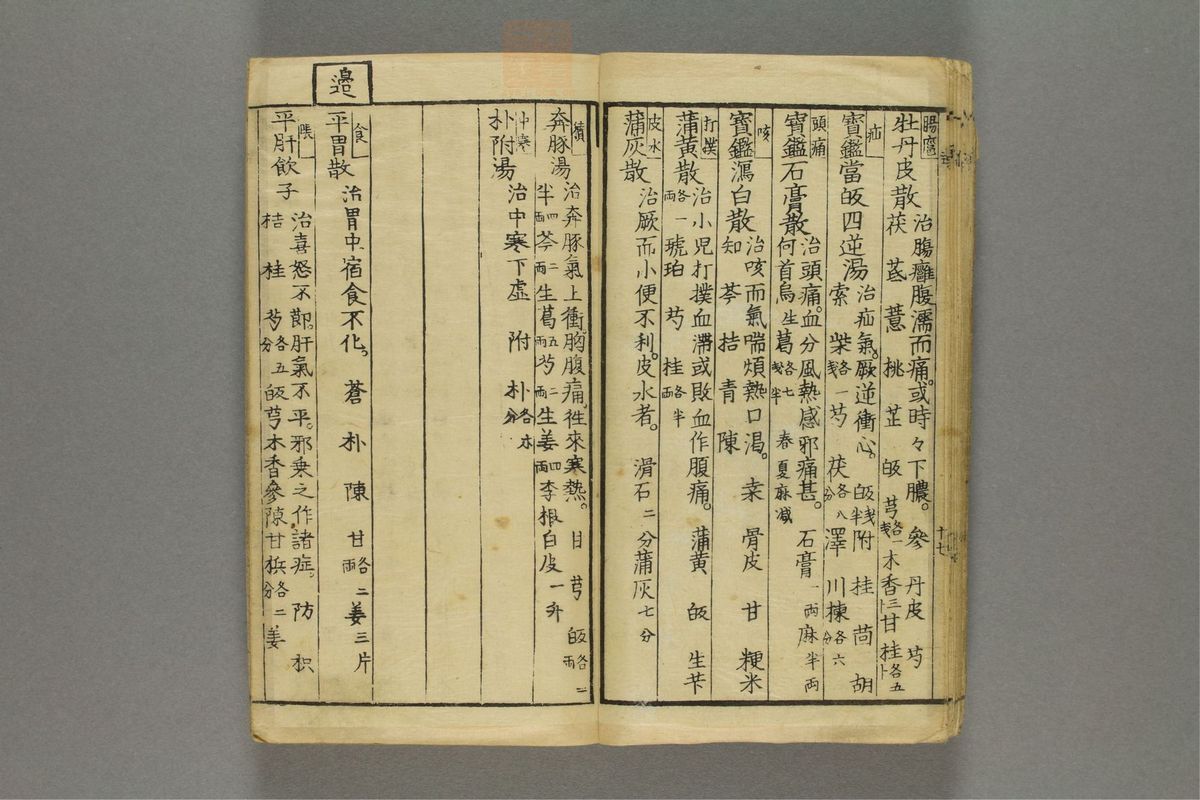 腸癰
牡丹皮散
治腸癰腹濡而痛。或時々下膿。參 丹皮 芍
茯 茋 薏 桃 芷 皈 芎各一戔 木香三卜 甘 桂各五卜
疝
寶鑑當皈四逆湯
治疝氣。厥逆衝心。皈戔半 附 桂 茴 胡
索 柴各一戔 芍 茯各八分 澤 川楝各六分
頭痛
寶鑑石膏散
治頭痛。血分風熱感邪痛甚。石膏一兩 麻半兩
何首烏 生 葛各七戔半 春夏麻減
咳
寶鑑瀉白散
治咳而氣喘煩熱口渴。桒 骨皮 甘 粳米
知 芩 桔 青 陳
打撲
蒲黄散
治小児打撲血滯或敗血作腹痛。蒲黄 皈 生芐
各一兩 琥珀 芍 桂各半兩
皮水
蒲灰散
治厥而小便不利。皮水者。滑石二分 蒲灰七分
十七
奔豚湯
治奔豚氣上衝。胸腹痛。徃來寒熱。甘 芎 皈各二兩
半四兩 芩二兩 生葛五兩 芍二兩 生姜四兩 李根白皮一升
中寒
朴附湯
治中寒下虚 附 朴各分
邉
食
平胃散
治胃中宿食不化。蒼 朴 陳 甘各二兩 姜三片
平肝飲子
治喜怒不節。肝氣不平。邪乗之作諸症。防 枳
桔 桂 芍各五分 皈 芎 木香 參 陳 甘 梹各二分 姜